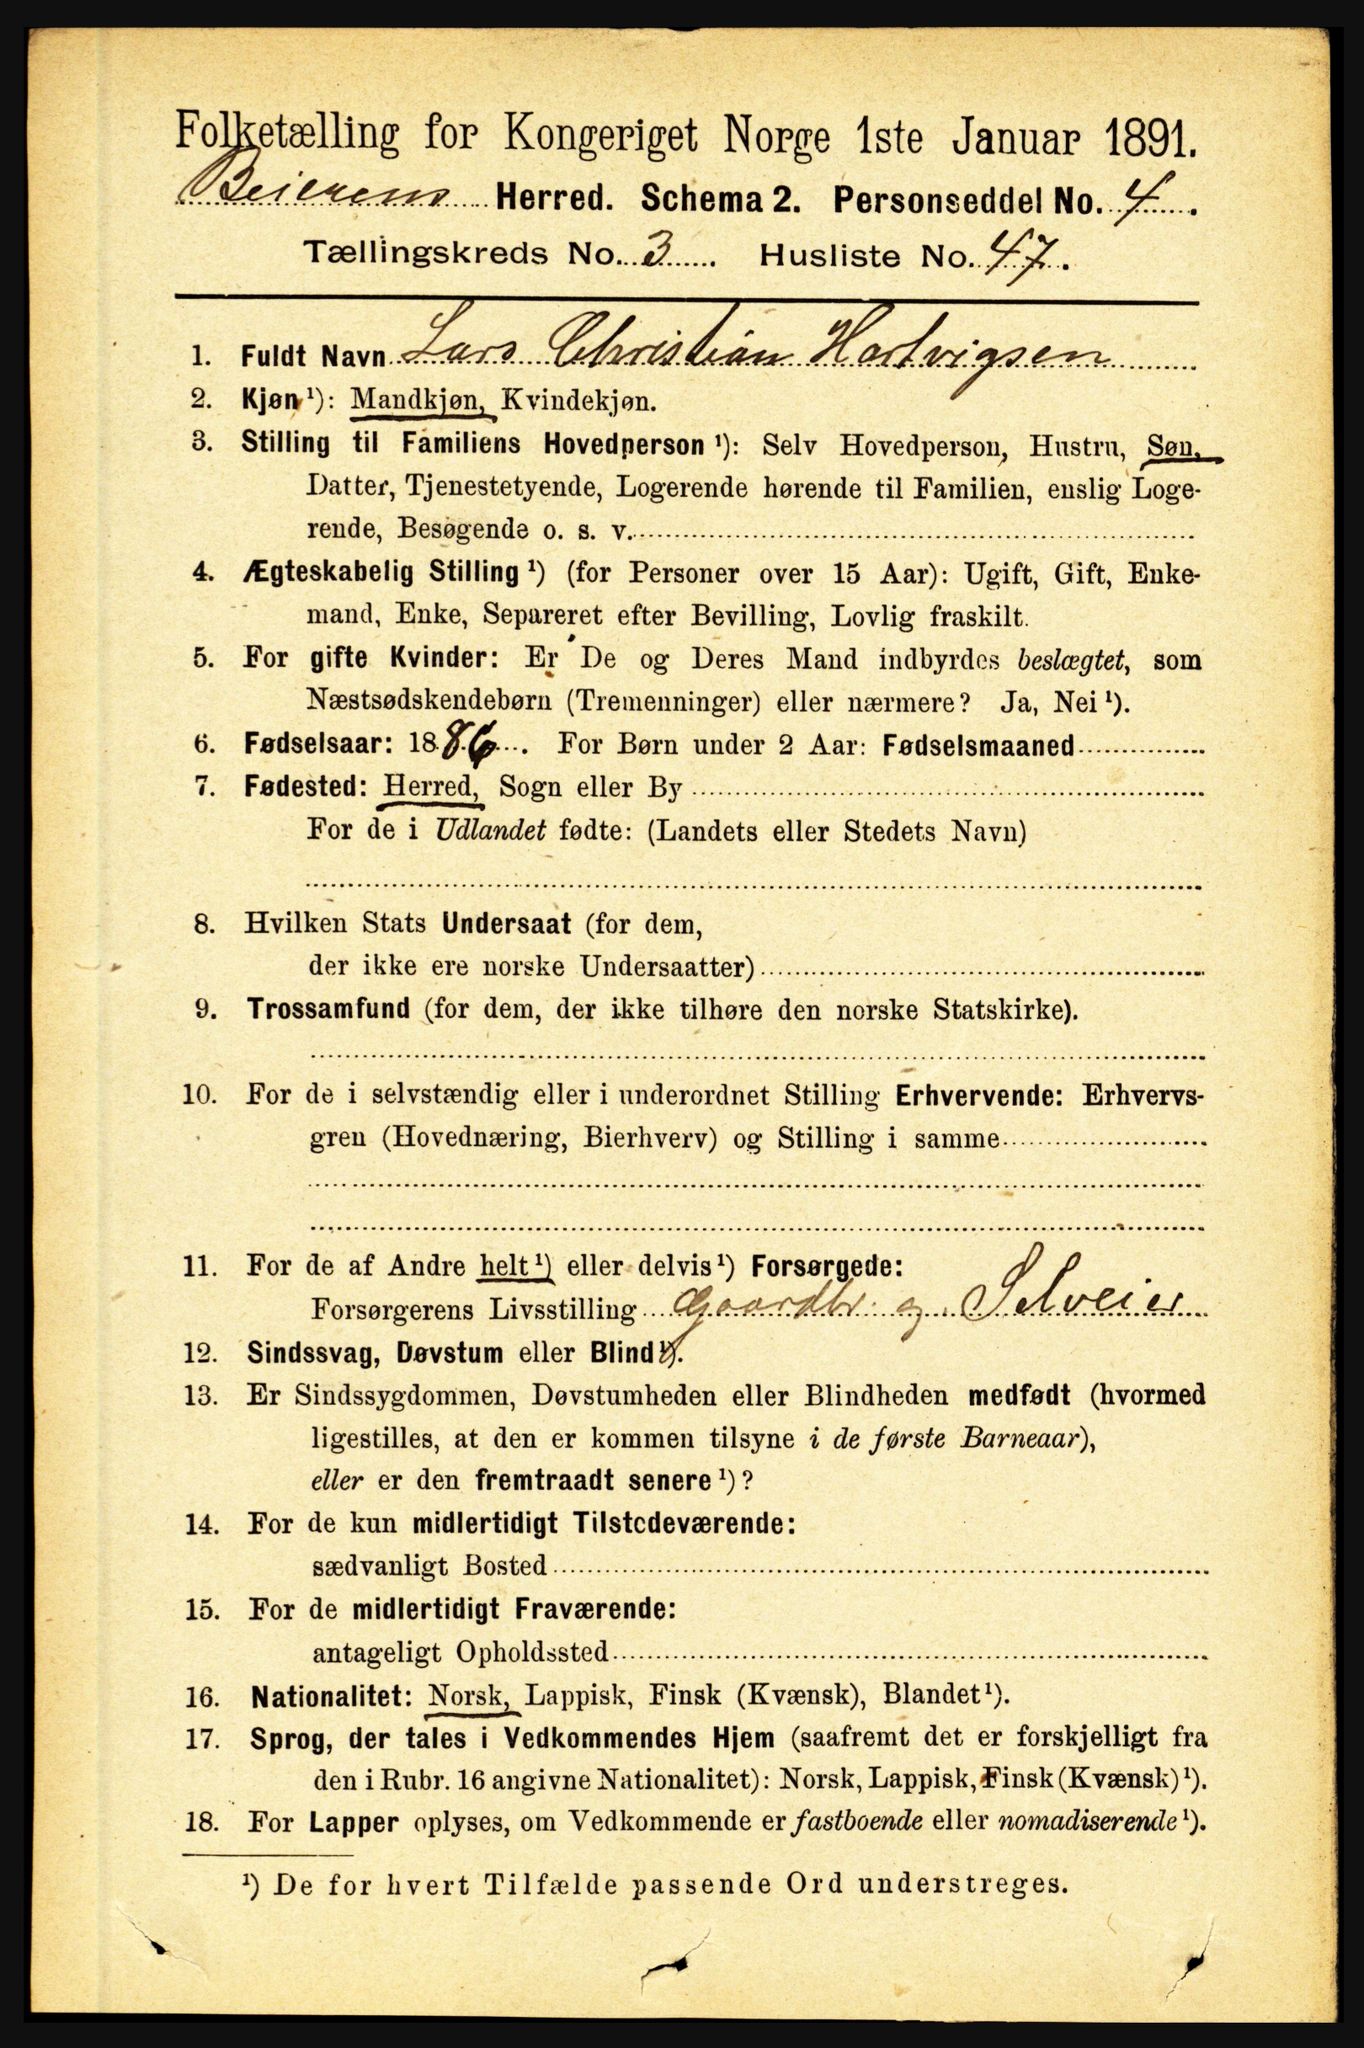 Folketælling for Kongeriget Norge 1ste Januar 1891.
Beierens Herred. Schema 2. Personseddel No. 4.
Tællingskreds No. 3. Husliste No. 47.
1. Fuldt Navn Lars Christian Hartvigsen
2. Kjøn ¹): Mandkjøn, Kvindekjøn.
3. Stilling til Familiens Hovedperson ¹): Selv Hovedperson, Hustru, Søn,
Datter, Tjenestetyende, Logerende hørende til Familien, enslig Loge-
rende, Besøgende o. s. v.
4. Ægteskabelig Stilling ¹) (for Personer over 15 Aar): Ugift, Gift, Enke-
mand, Enke, Separeret efter Bevilling, Lovlig fraskilt.
5. For gifte Kvinder: Er De og Deres Mand indbyrdes beslægtet, som
Næstsødskendebørn (Tremenninger) eller nærmere? Ja, Nei ¹).
6. Fødselsaar: 1886. For Børn under 2 Aar: Fødselsmaaned
7. Fødested: Herred, Sogn eller By
For de i Udlandet fødte: (Landets eller Stedets Navn)
8. Hvilken Stats Undersaat (for dem,
der ikke ere norske Undersaatter)
9. Trossamfund (for dem, der ikke tilhøre den norske Statskirke).
10. For de i selvstændig eller i underordnet Stilling Erhvervende: Erhvervs-
gren (Hovednæring, Bierhverv) og Stilling i samme
11. For de af Andre helt ¹) eller delvis ¹) Forsørgede:
Forsørgerens Livsstilling Gaardbr. og Selveier
12. Sindssvag, Døvstum eller Blind ¹).
13. Er Sindssygdommen, Døvstumheden eller Blindheden medfødt (hvormed
ligestilles, at den er kommen tilsyne i de første Barneaar),
eller er den fremtraadt senere ¹)?
14. For de kun midlertidigt Tilstedeværende:
sædvanligt Bosted
15. For de midlertidigt Fraværende:
antageligt Opholdssted
16. Nationalitet: Norsk, Lappisk, Finsk (Kvænsk), Blandet ¹).
17. Sprog, der tales i Vedkommendes Hjem (saafremt det er forskjelligt fra
den i Rubr. 16 angivne Nationalitet): Norsk, Lappisk, Finsk (Kvænsk) ¹).
18. For Lapper oplyses, om Vedkommende er fastboende eller nomadiserende ¹).
¹) De for hvert Tilfælde passende Ord understreges.